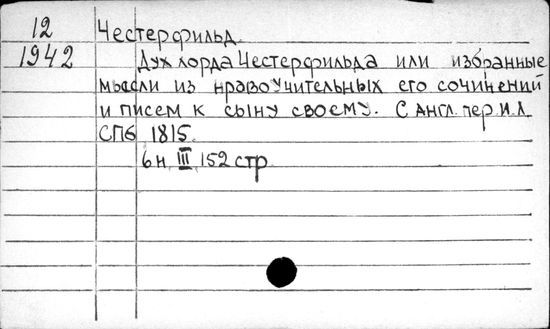 12 Честерфильд.
1942 Дух лорда Честерфильда или избранные
мысли из нравоучительных его сочинений
и писем к сыну своему. С англ. пер. И. Л.
СПб 1815.
6н. III, 152 стр